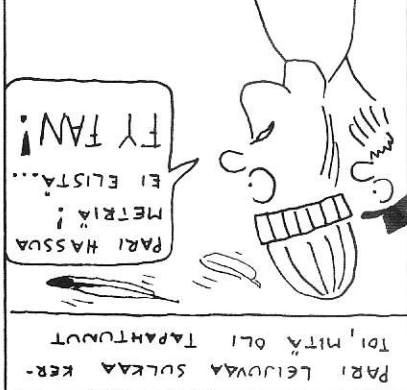 PARI LEIJUVAA SULKAA KER-
TOI, MITÄ OLI TAPAHTUNUT
PARI HASSUA
METRIÄ!
EI ELISTÄ...
FY FAN!